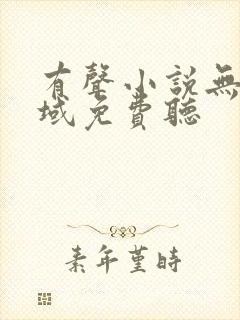 有聲小說無
域免費聽
素年堇時